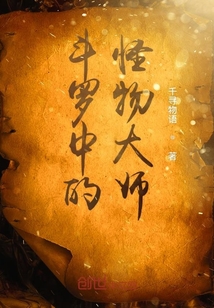 斗罗中的
怪物大师
千寻物语 著
创世